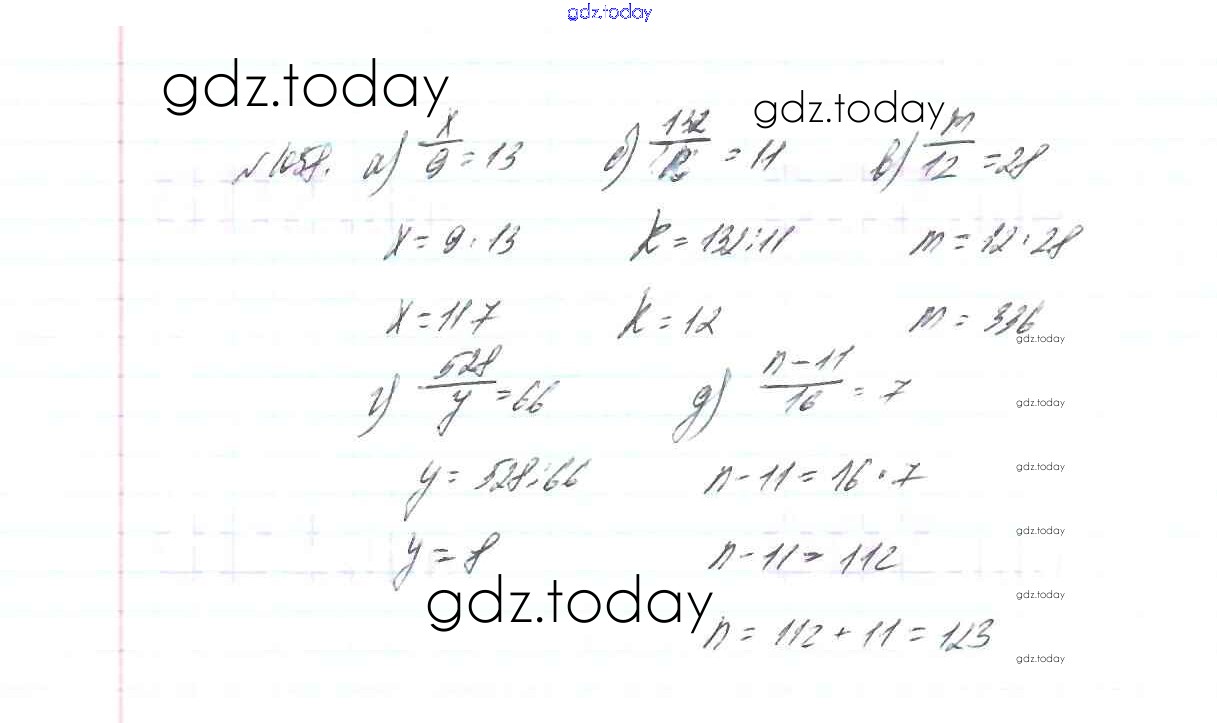 gdz.today
gdz.today
gdz.today
№1058. а) x/9 = 13 б) 132/k = 11 в) m/12 = 28
x = 9 · 13 k = 132:11 m = 12 · 28
x = 117 k = 12 m = 336
gdz.today
г) 528/y = 66 д) n-11/16 = 7
gdz.today
y = 528:66 n-11 = 16 · 7
gdz.today
y = 8 n-11 = 112
gdz.today
gdz.today
gdz.today
n = 112 + 11 = 123
gdz.today